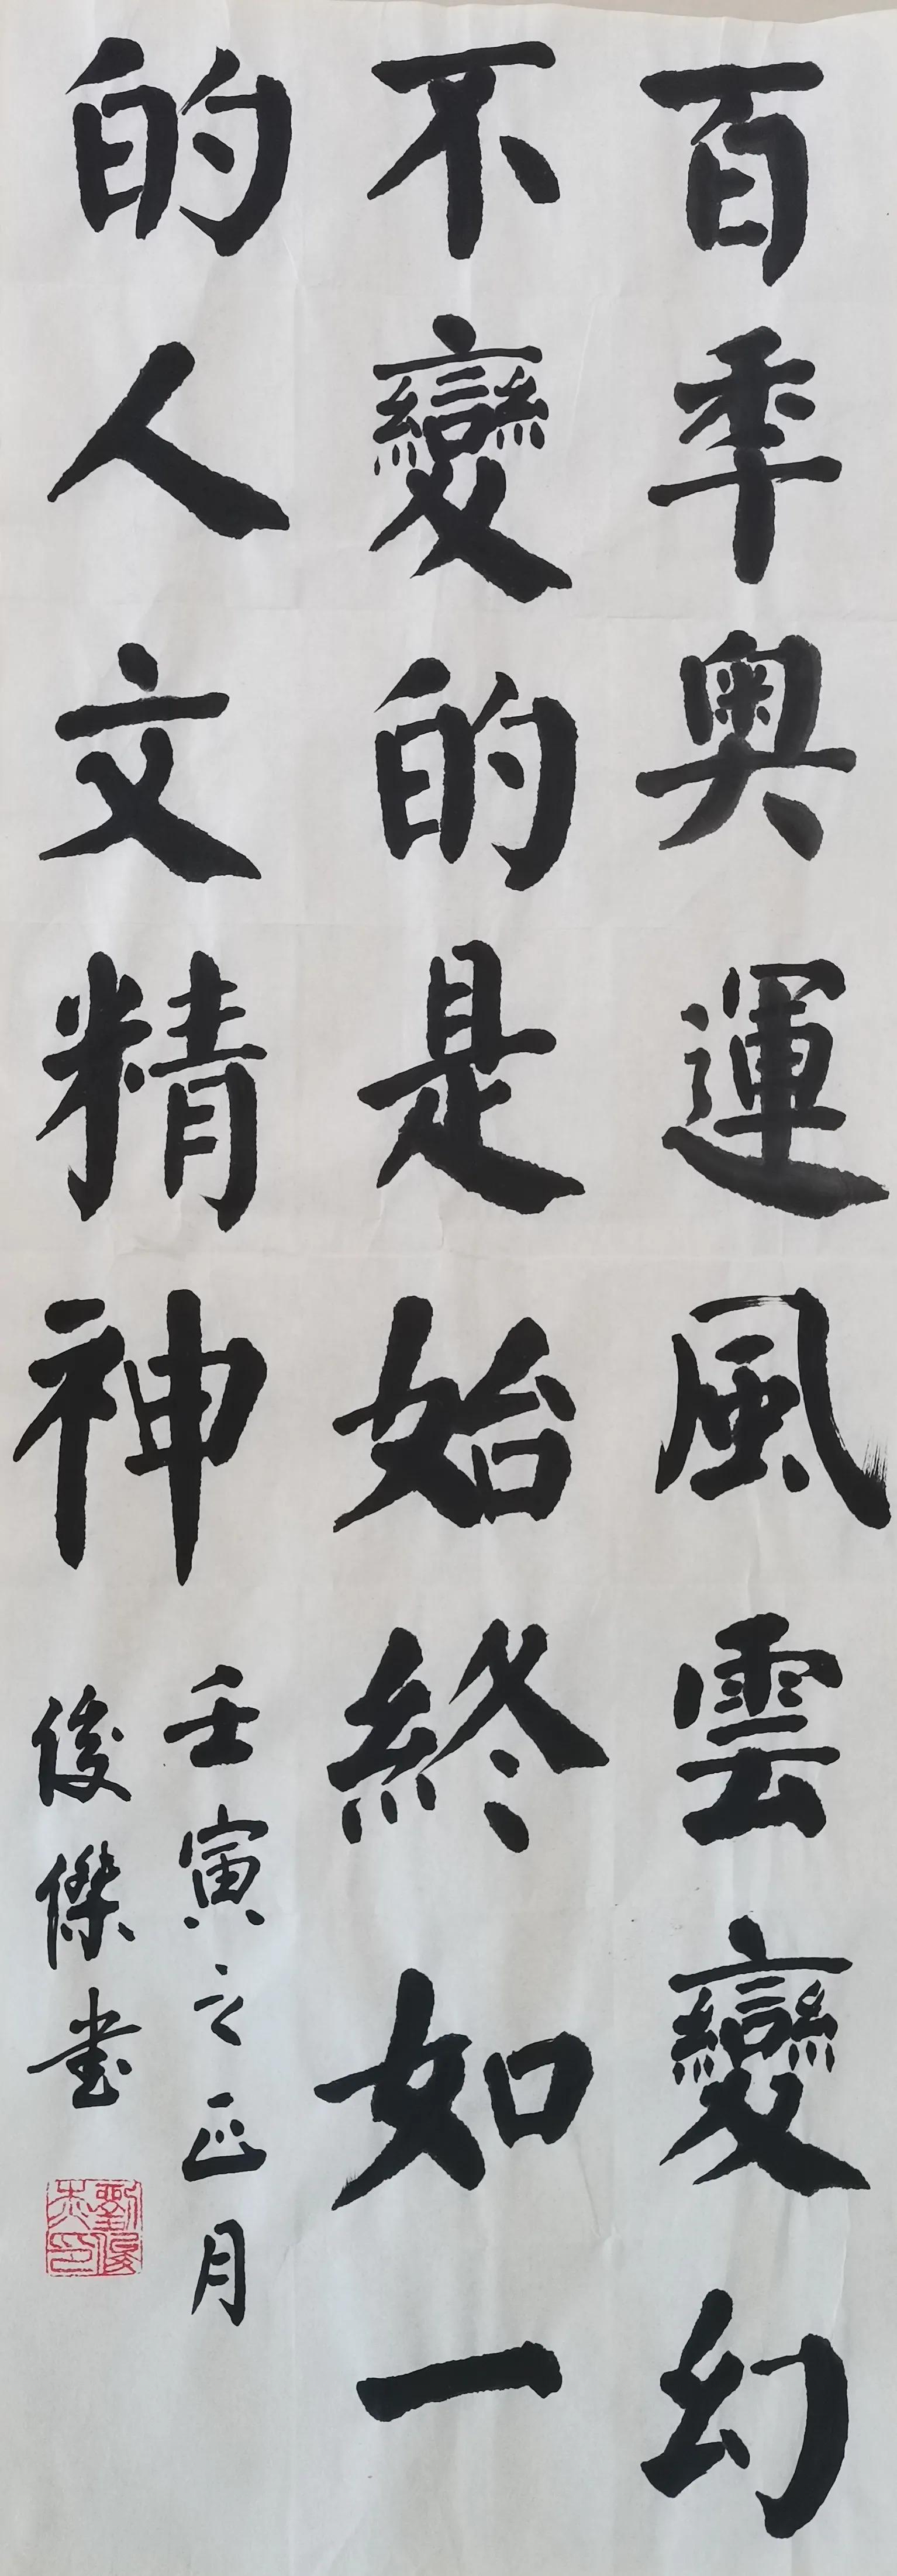 百年奥運風雲變幻
不變的是始終如一
的人文精神
壬寅之正月
俊傑書
劉俊杰印